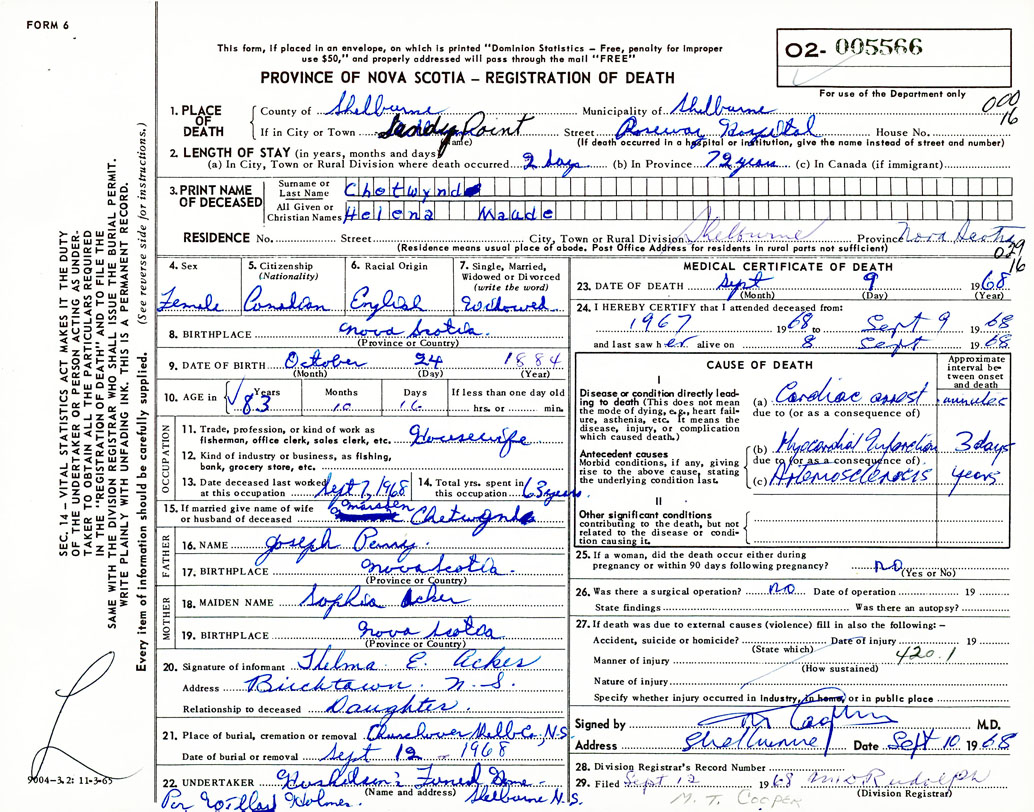 FORM 6
This form, if placed in an envelope, on which is printed "Dominion Statistics – Free, penalty for improper
use $50," and properly addressed will pass through the mail "FREE"
O2- 005566
PROVINCE OF NOVA SCOTIA – REGISTRATION OF DEATH
For use of the Department only
000
16
1. PLACE OF DEATH
County of Shelburne Municipality of Shelburne
If in City or Town Sandy Point Street Roseway Hospital House No.
(Name) (If death occurred in a hospital or institution, give the name instead of street and number)
2. LENGTH OF STAY (in years, months and days)
(a) In City, Town or Rural Division where death occurred 2 days (b) In Province 72 years (c) In Canada (if immigrant)
3. PRINT NAME OF DECEASED
Surname or Last Name Chetwynde
All Given or Christian Names Helena Maude
RESIDENCE No. Street City, Town or Rural Division Shelburne Province Nova Scotia
(Residence means usual place of abode. Post Office Address for residents in rural parts not sufficient)
029
16
4. Sex
Female
5. Citizenship (Nationality)
Canadian
6. Racial Origin
English
7. Single, Married, Widowed or Divorced (write the word)
Widowed
8. BIRTHPLACE Nova Scotia
(Province or Country)
9. DATE OF BIRTH October 24 1884
(Month) (Day) (Year)
10. AGE in Years 83 Months 10 Days 16 If less than one day old hrs. or min.
OCCUPATION
11. Trade, profession, or kind of work as fisherman, office clerk, sales clerk, etc. Housewife
12. Kind of industry or business, as fishing, bank, grocery store, etc.
13. Date deceased last worked at this occupation Sept 7, 1968
14. Total yrs. spent in this occupation 63 years
15. If married give name of wife or husband of deceased Chetwynde
FATHER
16. NAME Joseph Perry
17. BIRTHPLACE Nova Scotia
(Province or Country)
MOTHER
18. MAIDEN NAME Sophia Acker
19. BIRTHPLACE Nova Scotia
(Province or Country)
20. Signature of informant Thelma E. Acker
Address Birchtown. N.S.
Relationship to deceased Daughter
21. Place of burial, cremation or removal Shelb Co, N.S.
Date of burial or removal Sept 12 – 1968
22. UNDERTAKER Funeral Home
(Name and address) Shelburne N.S.
Per Holmes.
MEDICAL CERTIFICATE OF DEATH
23. DATE OF DEATH Sept 9 1968
(Month) (Day) (Year)
24. I HEREBY CERTIFY that I attended deceased from:
1967 1968 to Sept 9 1968
and last saw her alive on 8 Sept 1968
CAUSE OF DEATH
Approximate interval between onset and death
I
Disease or condition directly leading to death (This does not mean the mode of dying, e.g., heart failure, asthenia, etc. It means the disease, injury, or complication which caused death.)
(a) Cardiac arrest minutes
due to (or as a consequence of)
Antecedent causes
Morbid conditions, if any, giving rise to the above cause, stating the underlying condition last.
(b) Myocardial Infarction 3 days
due to (or as a consequence of)
(c) Arteriosclerosis years
II
Other significant conditions contributing to the death, but not related to the disease or condition causing it.
25. If a woman, did the death occur either during pregnancy or within 90 days following pregnancy? NO
(Yes or No)
26. Was there a surgical operation? NO Date of operation 19
State findings Was there an autopsy?
27. If death was due to external causes (violence) fill in also the following:–
Accident, suicide or homicide? Date of injury 19
(State which)
420.1
Manner of injury
(How sustained)
Nature of injury
Specify whether injury occurred in industry, in home, or in public place
Signed by M.D.
Address Shelburne Date Sept 10 1968
28. Division Registrar's Record Number
29. Filed Sept 12 1968 Rudolph
(Division Registrar)
M. T. COOPER
SEC. 14 – VITAL STATISTICS ACT MAKES IT THE DUTY
OF THE UNDERTAKER OR PERSON ACTING AS UNDER-
TAKER TO OBTAIN ALL THE PARTICULARS REQUIRED
IN THE "REGISTRATION OF DEATH", AND TO FILE THE
SAME WITH THE DIVISION REGISTRAR WHO SHALL ISSUE THE BURIAL PERMIT.
WRITE PLAINLY WITH UNFADING INK. THIS IS A PERMANENT RECORD.
Every item of information should be carefully supplied. (See reverse side for instructions.)
9004-3.2: 11-3-65